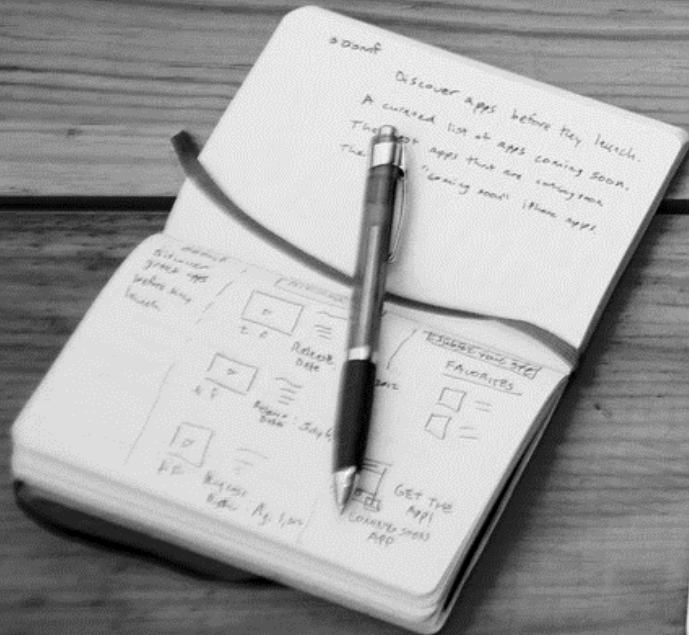 ooomf
Discover apps before they launch.
A curated list of apps coming soon.
The apps that are coming soon
The "coming soon" iPhone apps
Discover
great apps
before they
launch
Release
Date
2012
Release
Date : July
Release
Date : Aug. 1, 2012
SUBMIT YOUR APP
FAVORITES
GET THE
App!
COMING SOON
APP